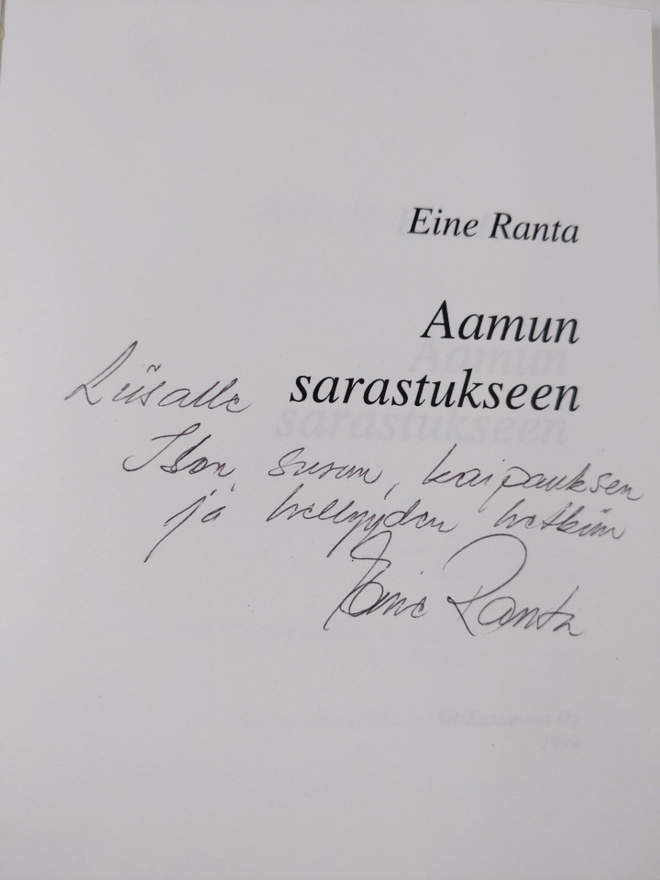 Eine Ranta
Aamun
sarastukseen
Liisalle
Ison surun, kaipauksen
ja hellyyden hetkiin
Eine Ranta
Oy
1999